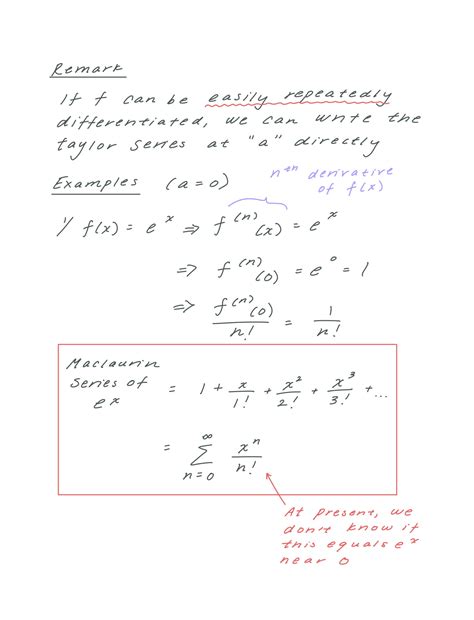 Remark
If f can be easily repeatedly
differentiated, we can write the
taylor series at "a" directly
Examples (a=0)
nth derivative
of f(x)
1/ f(x) = e^x ⇒ f^(n)(x) = e^x
⇒ f^(n)(0) = e^0 = 1
⇒ f^(n)(0)/n! = 1/n!
Maclaurin
Series of
e^x = 1 + x/1! + x^2/2! + x^3/3! + ...
= ∑_{n=0}^{∞} x^n/n!
At present, we
don't know if
this equals e^x
near 0